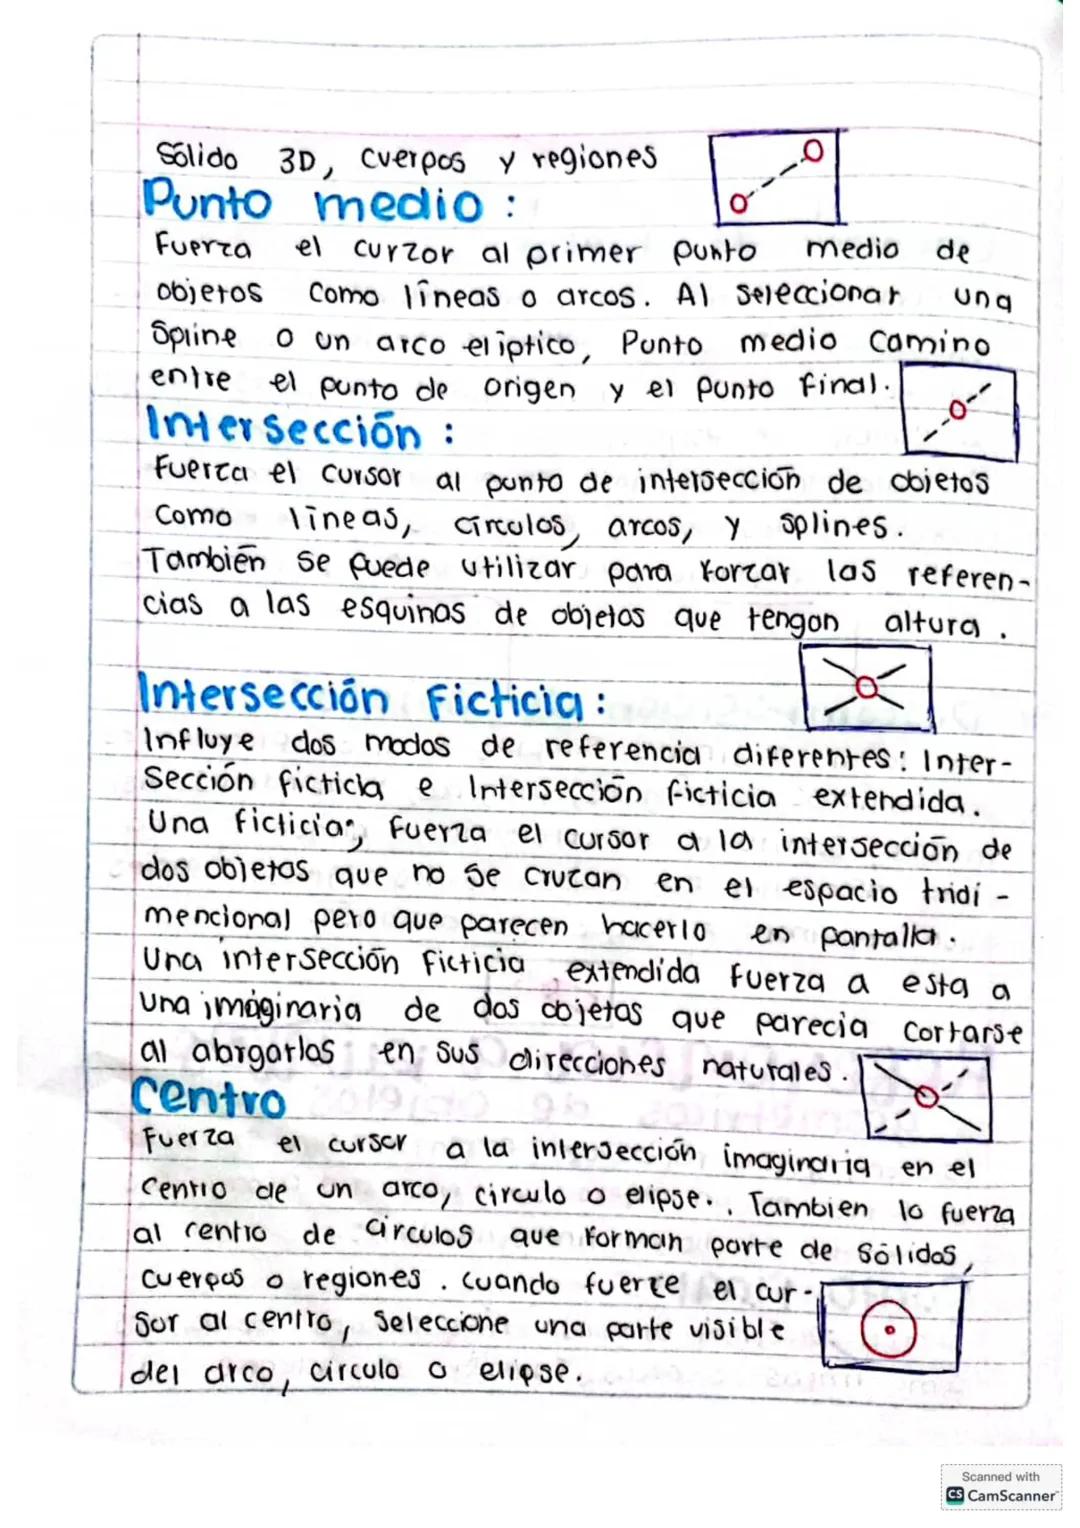 Sólido 3D, cuerpos y regiones
Punto medio :
Fuerza el curzor al primer punto medio de
objetos como líneas o arcos. Al seleccionar una
Spline o un arco eliptico, Punto medio Camino
entre el punto de origen y el punto final.
Intersección :
Fuerza el cursor al punto de intersección de objetos
como líneas, círculos, arcos, y splines.
También se puede utilizar para forzar las referen-
cias a las esquinas de objetos que tengan altura.
Intersección Ficticia:
Influye dos modos de referencia diferentes: Inter-
sección ficticia e Intersección ficticia extendida.
Una ficticia, fuerza el cursor a la intersección de
dos objetos que no se cruzan en el espacio tridi-
mencional pero que parecen hacerlo en pantalla.
Una intersección ficticia extendida fuerza a esta a
una imáginaria de dos objetos que parecia cortarse
al alargarlas en sus direcciones naturales.
Centro
Fuerza el cursor a la intersección imaginaria en el
centro de un arco, circulo o elipse.. Tambien lo fuerza
al centro de circulos que forman parte de sólidos,
cuerpos o regiones. cuando fuerze el cur-
sor al centro, seleccione una parte visible
del arco, circulo o elipse.
Scanned with
CS CamScanner